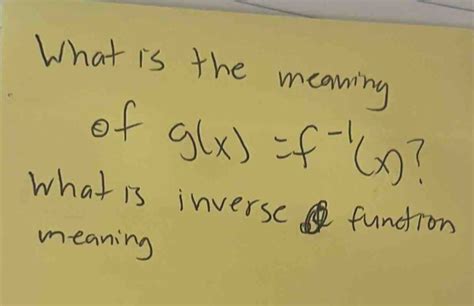 What is the meaning
of g(x) = f⁻¹(x)?
What is inverse function
meaning